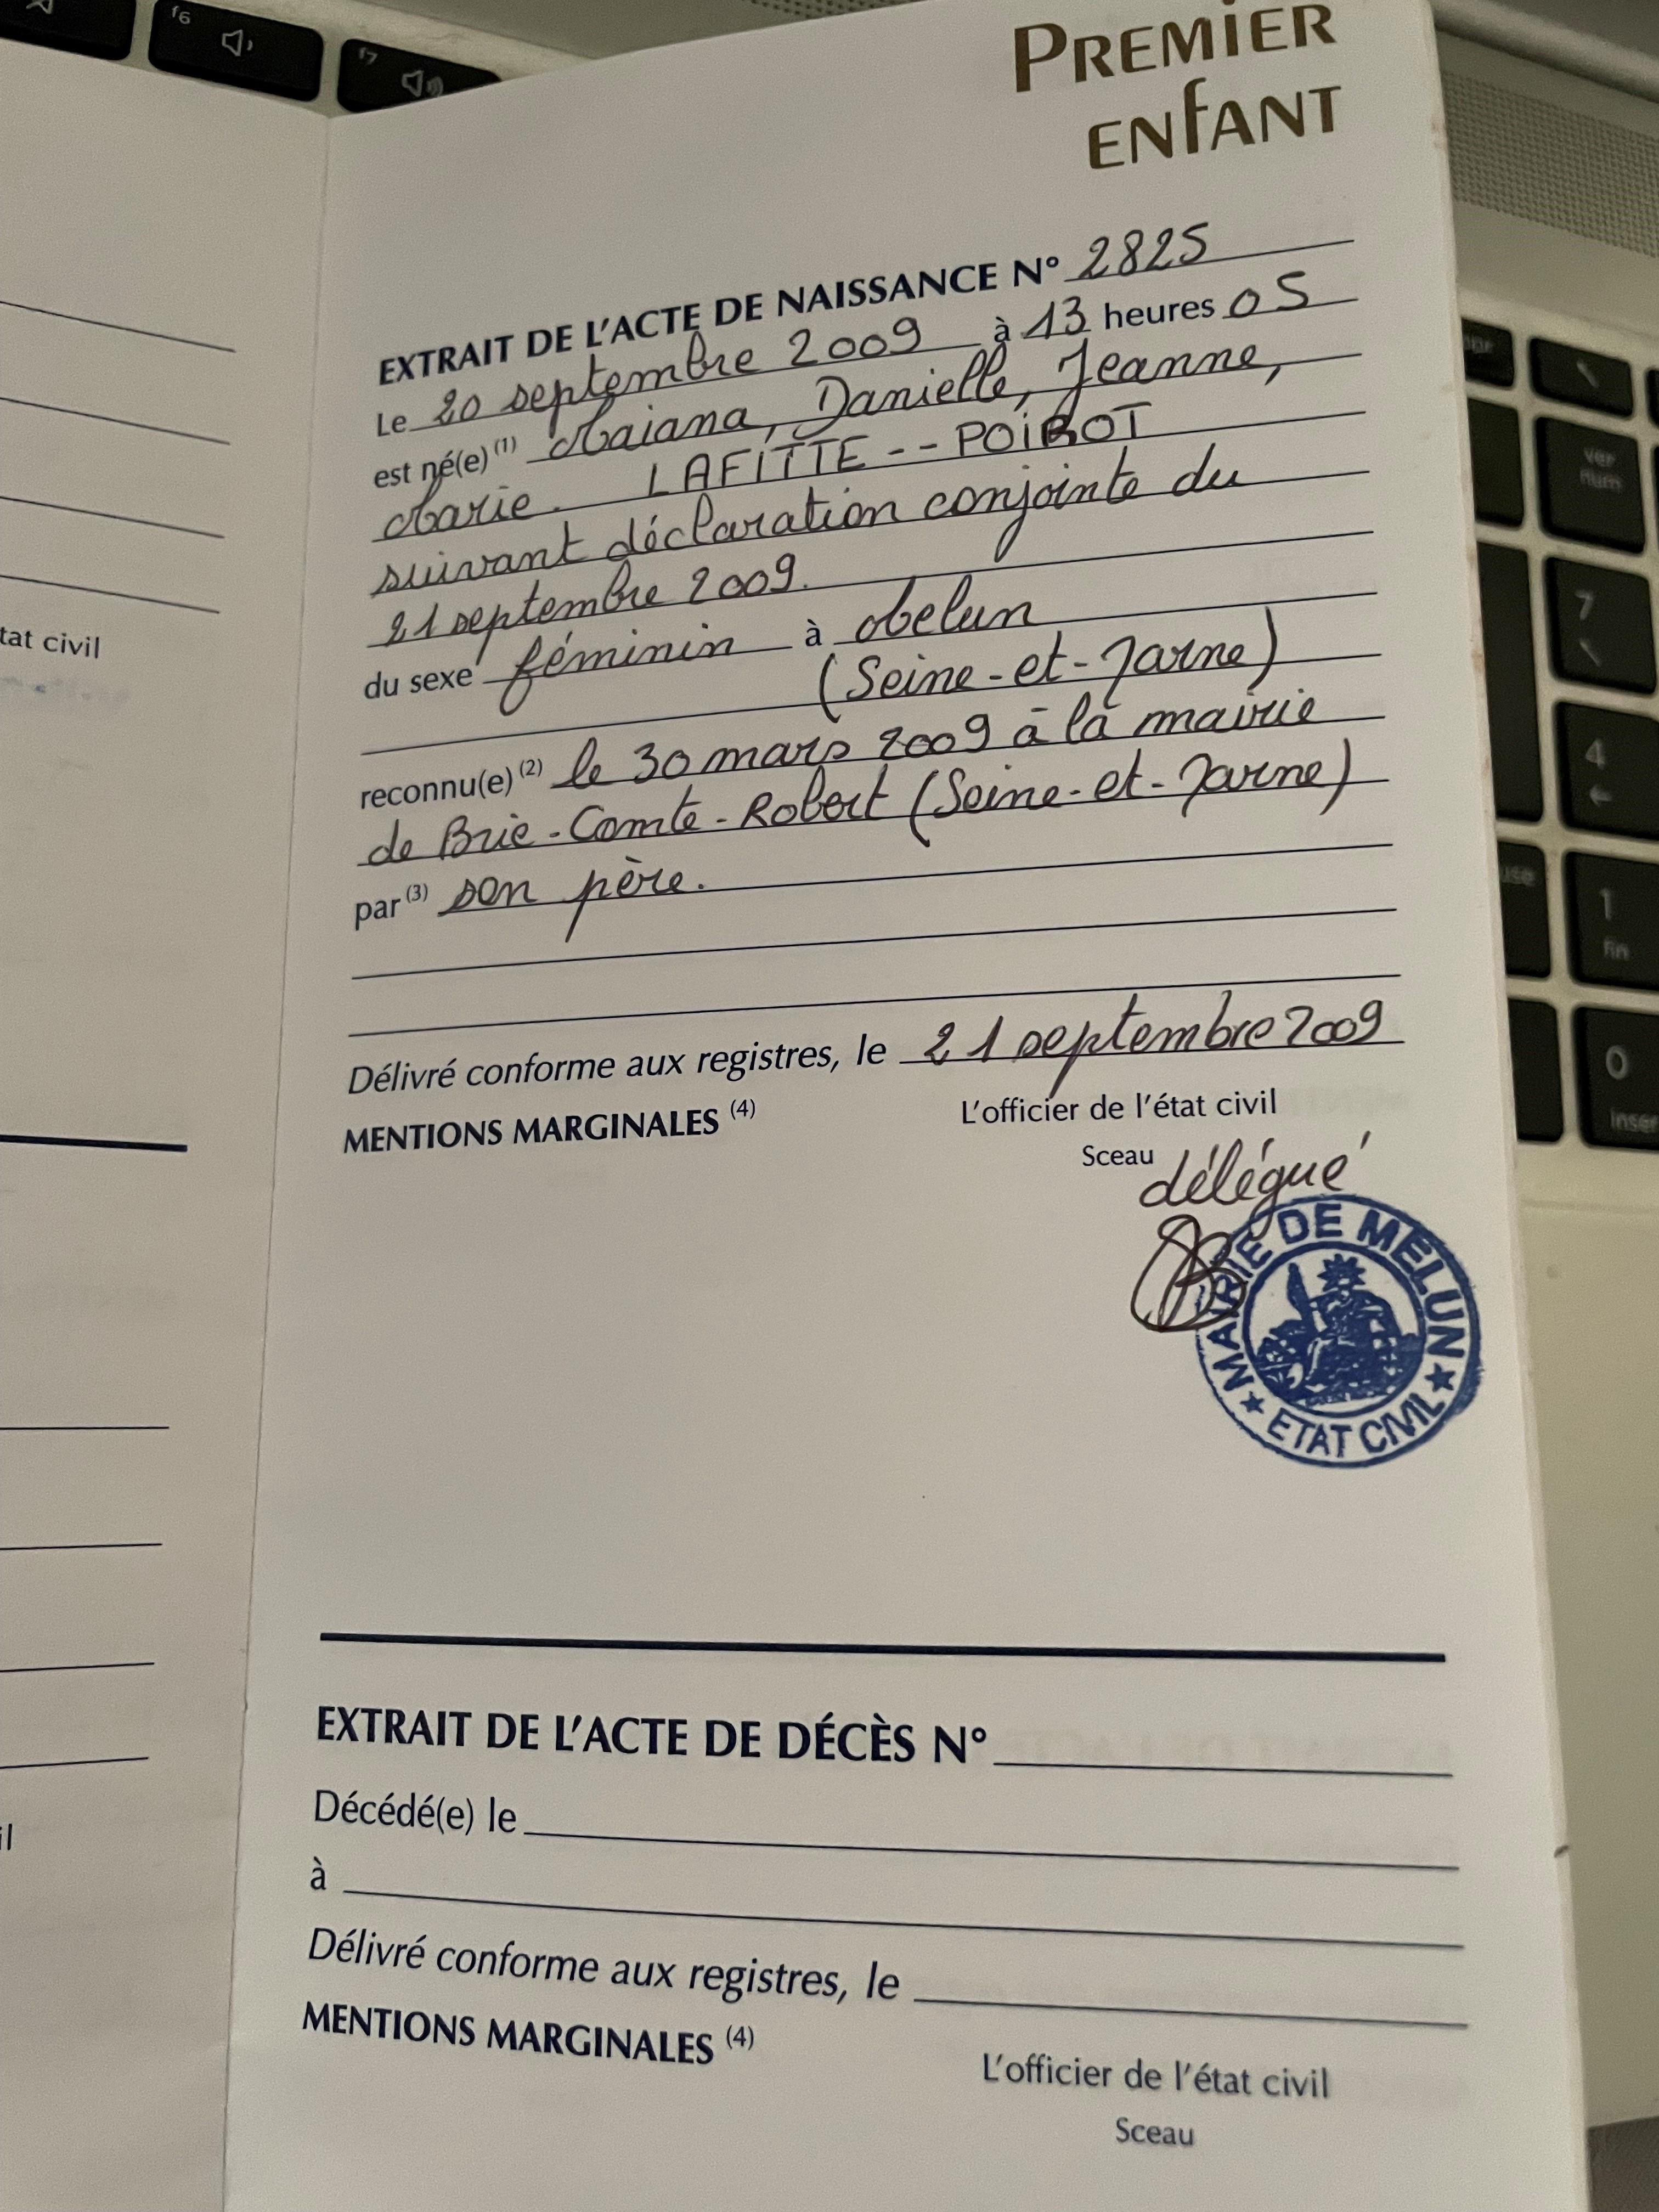 f6
f7
PREMIER
ENFANT
EXTRAIT DE L'ACTE DE NAISSANCE N° 2825
Le 20 septembre 2009 à 13 heures 05
est né(e) (1) Maiana, Danielle, Jeanne,
Marie. LAFITTE -- POIROT
suivant déclaration conjointe du
21 septembre 2009.
du sexe féminin à Melun
(Seine-et-Marne)
reconnu(e) (2) le 30 mars 2009 à la mairie
de Brie-Comte-Robert (Seine-et-Marne)
par (3) son père.
Délivré conforme aux registres, le 21 septembre 2009
MENTIONS MARGINALES (4)
L'officier de l'état civil
Sceau
délégué
MAIRIE DE MELUN
★ ETAT CIVIL ★
EXTRAIT DE L'ACTE DE DÉCÈS N°
Décédé(e) le
à
Délivré conforme aux registres, le
MENTIONS MARGINALES (4)
L'officier de l'état civil
Sceau
tat civil
il
ver
num
7
4
1
fin
0
inser